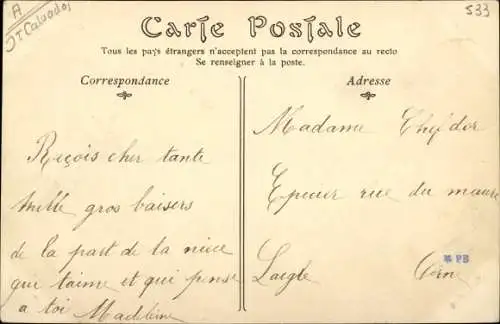 A
Calvados
533
Carte Postale
Tous les pays étrangers n'acceptent pas la correspondance au recto
Se renseigner à la poste.
Correspondance
Adresse
Reçois cher tante
mille gros baisers
de la part de ta niece
qui t'aime et qui pense
a toi Madeleine
Madame Chefdor
Epicier rue du
Laigle Orne
* PB